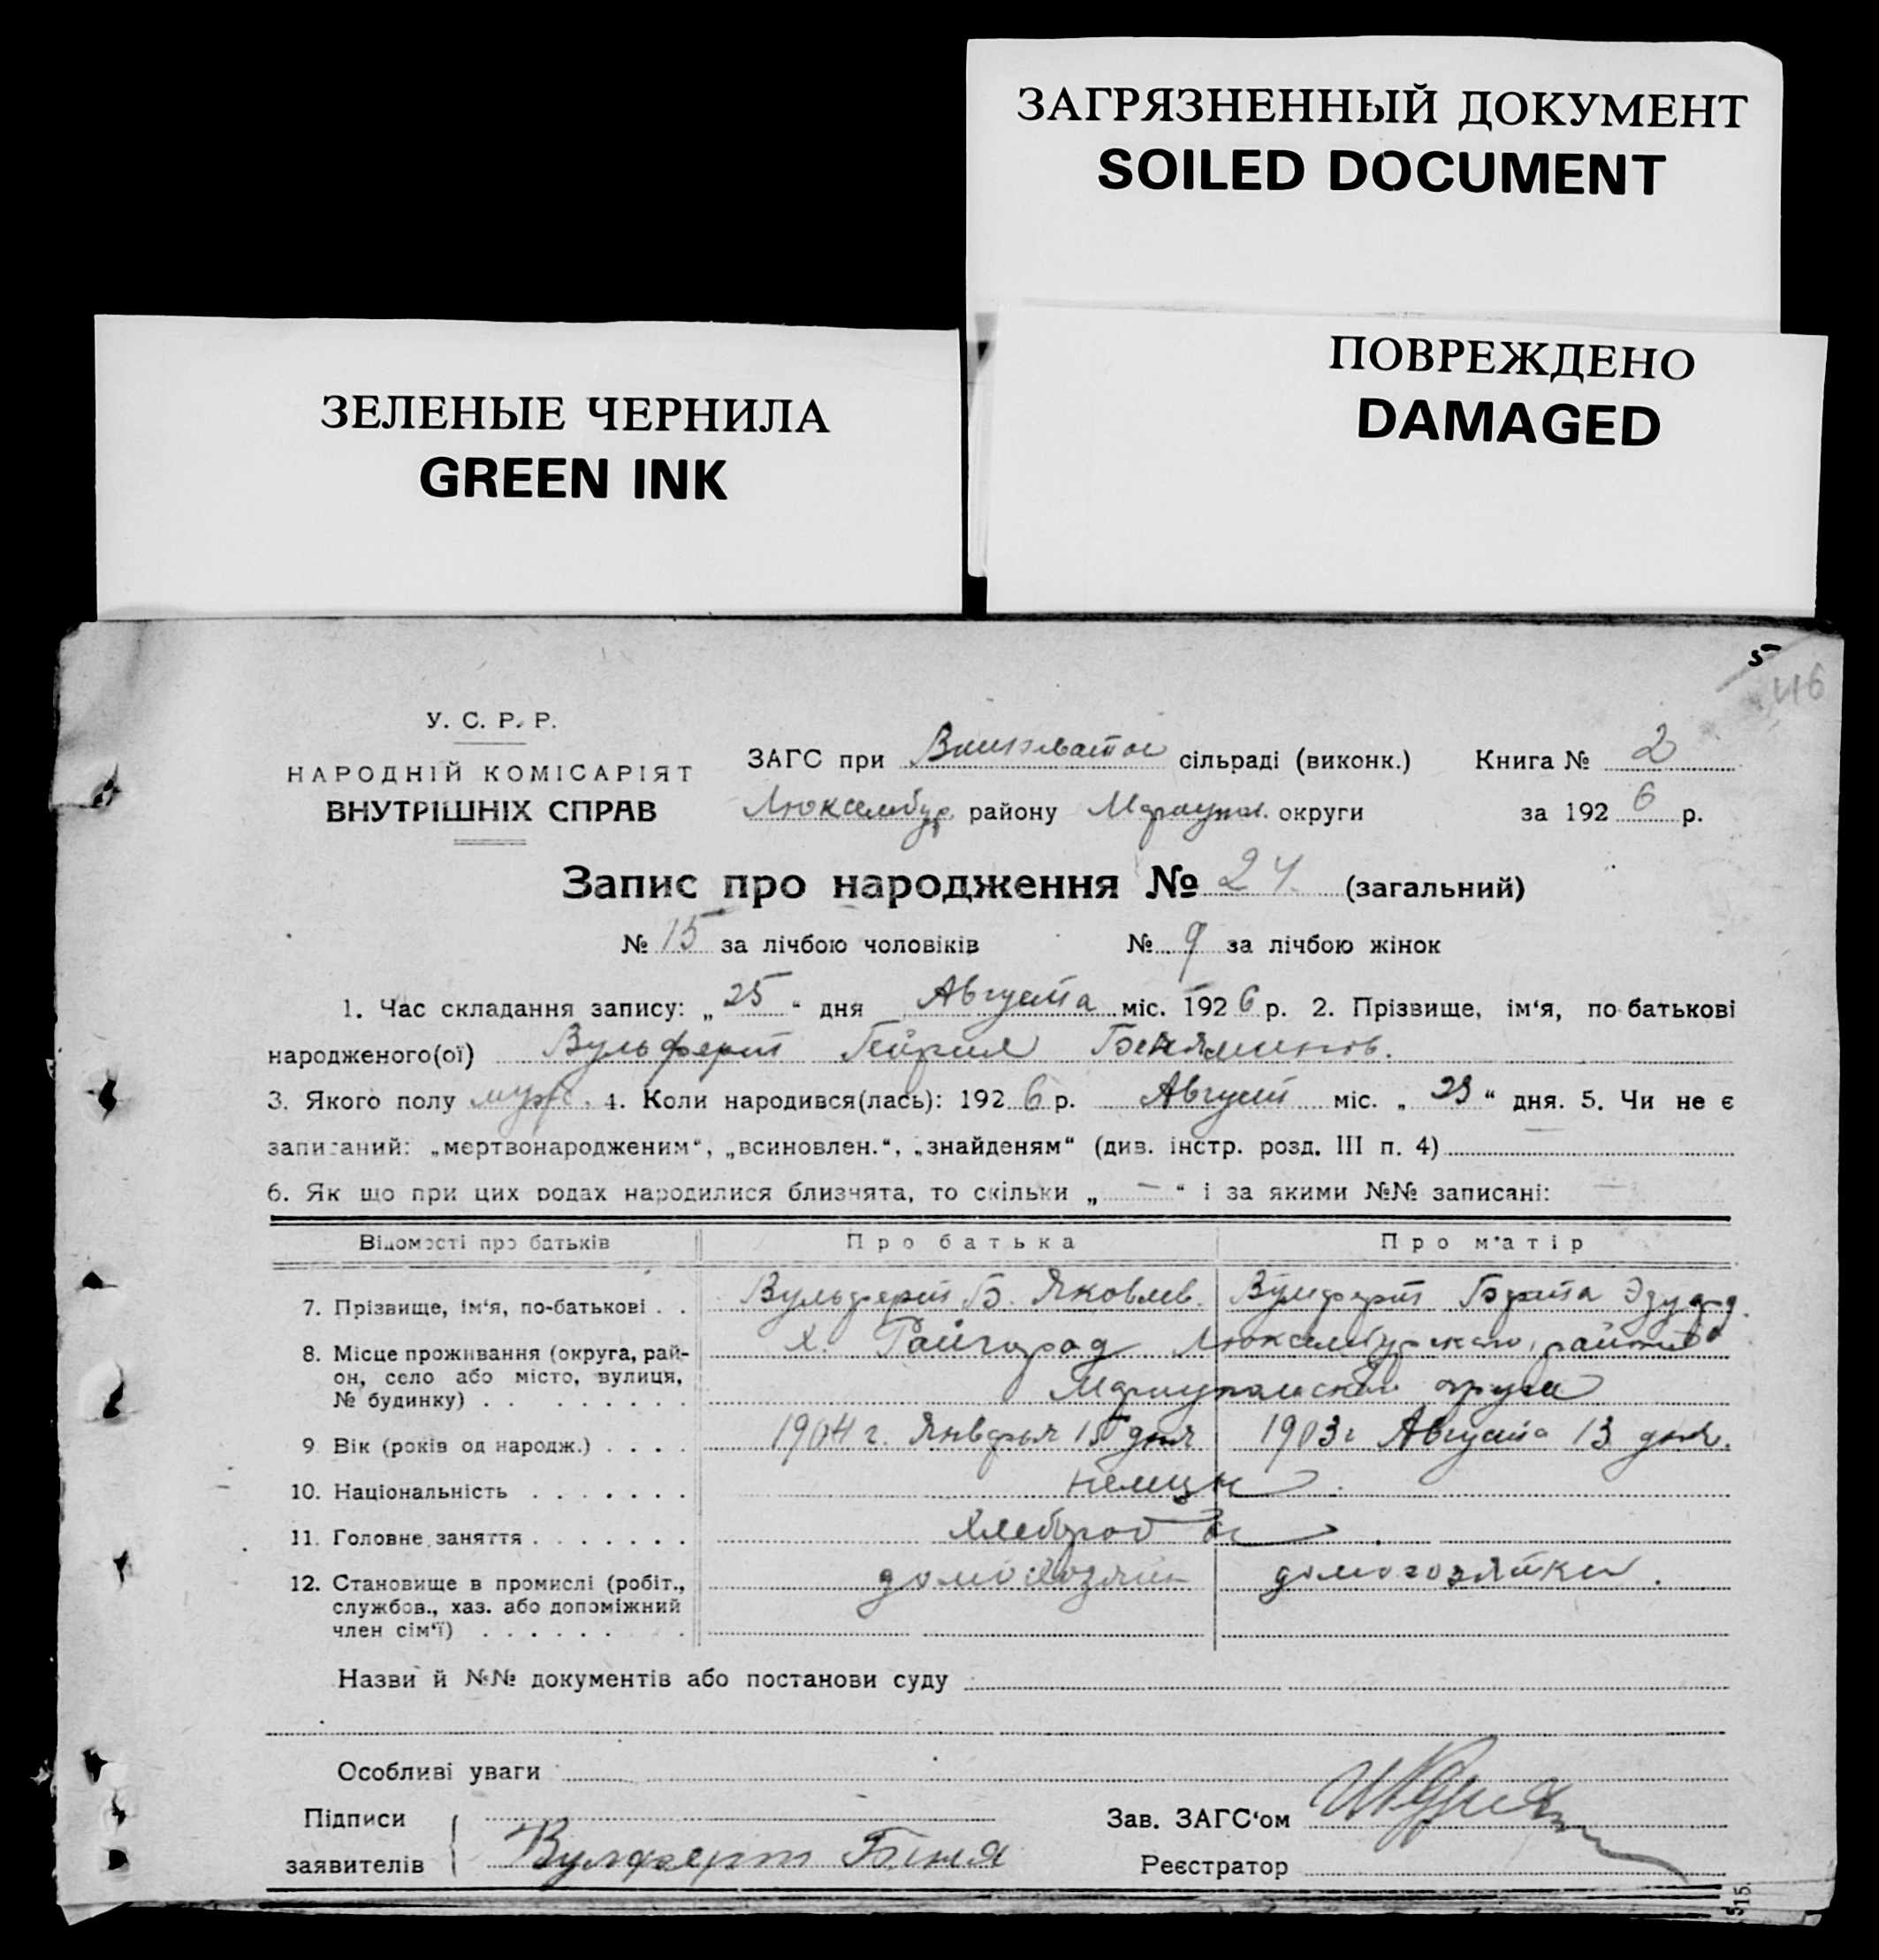 ЗАГРЯЗНЕННЫЙ ДОКУМЕНТ
SOILED DOCUMENT
ПОВРЕЖДЕНО
DAMAGED
ЗЕЛЕНЫЕ ЧЕРНИЛА
GREEN INK
5
46
У. С. Р. Р.
НАРОДНІЙ КОМІСАРІЯТ
ВНУТРІШНІХ СПРАВ
ЗАГС при сільраді (виконк.) Книга № 2
Люксембур. району Мариуп. округи за 192 6 р.
Запис про народження № 24 (загальний)
№ 15 за лічбою чоловіків № 9 за лічбою жінок
1. Час складання запису: „ 25 “ дня Августа міс. 192 6 р. 2. Прізвище, ім‘я, по-батькові
народженого(ої) Вульферт Беняминов.
3. Якого полу муж. 4. Коли народився(лась): 192 6 р. Август міс. „ 23 “ дня. 5. Чи не є
записаний: „мертвонародженим“, „всиновлен.“, „знайденям“ (див. інстр. розд. III п. 4)
6. Як що при цих родах народилися близнята, то скільки „ — “ і за якими №№ записані: —
Відомості про батьків Про батька Про м‘атір
7. Прізвище, ім‘я, по-батькові . . Вульферт Б. Яковлев. Вульферт Берта Эдуард.
8. Місце проживання (округа, рай- х. Райгород Люксембургского района
он, село або місто, вулиця,
№ будинку) . . . . . . . . Мариупольской округи
9. Вік (років од народж.) . . . . 1904 г. Января 15 дня 1903 г Августа 13 дня.
10. Національність . . . . . . . немцы
11. Головне заняття . . . . . . . хлебороб
12. Становище в промислі (робіт., домохозяин домохозяйка.
службов., хаз. або допоміжний
член сім‘ї) . . . . . . . . .
Назви й №№ документів або постанови суду
Особливі уваги
Підписи Зав. ЗАГС‘ом
заявителів Вулферт Беня Реєстратор
5
15.